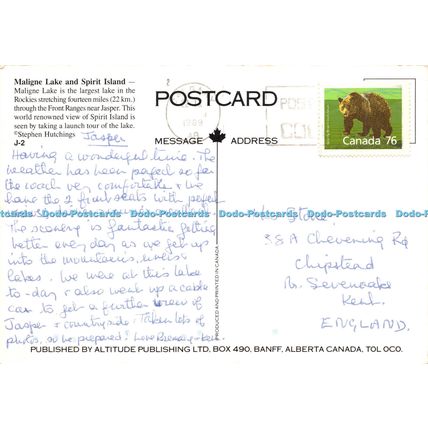 Maligne Lake and Spirit Island —
Maligne Lake is the largest lake in the
Rockies stretching fourteen miles (22 km.)
through the Front Ranges near Jasper. This
world renowned view of Spirit Island is
seen by taking a launch tour of the lake.
©Stephen Hutchings
J-2
POSTCARD
MESSAGE ADDRESS
Canada 76
Jasper
Having a wonderful time. The
weather has been perfect so far
the coach very comfortable & we
have the 2 front seats with perfect
Dodo-Postcards Dodo-Postcards Dodo-Postcards Dodo-Postcards Dodo-Postcards
The scenery is fantastic getting
better every day as we get up
into the mountains,
lakes. We were at this lake
to-day & also went up a cable
car to get a further view of
Jasper & countryside. Taken lots of
photos, so be prepared! Love
38A Chevening Rd
Chipstead
Nr. Sevenoaks
Kent.
ENGLAND.
PRODUCED AND PRINTED IN CANADA
PUBLISHED BY ALTITUDE PUBLISHING LTD, BOX 490, BANFF, ALBERTA CANADA, TOL OCO.